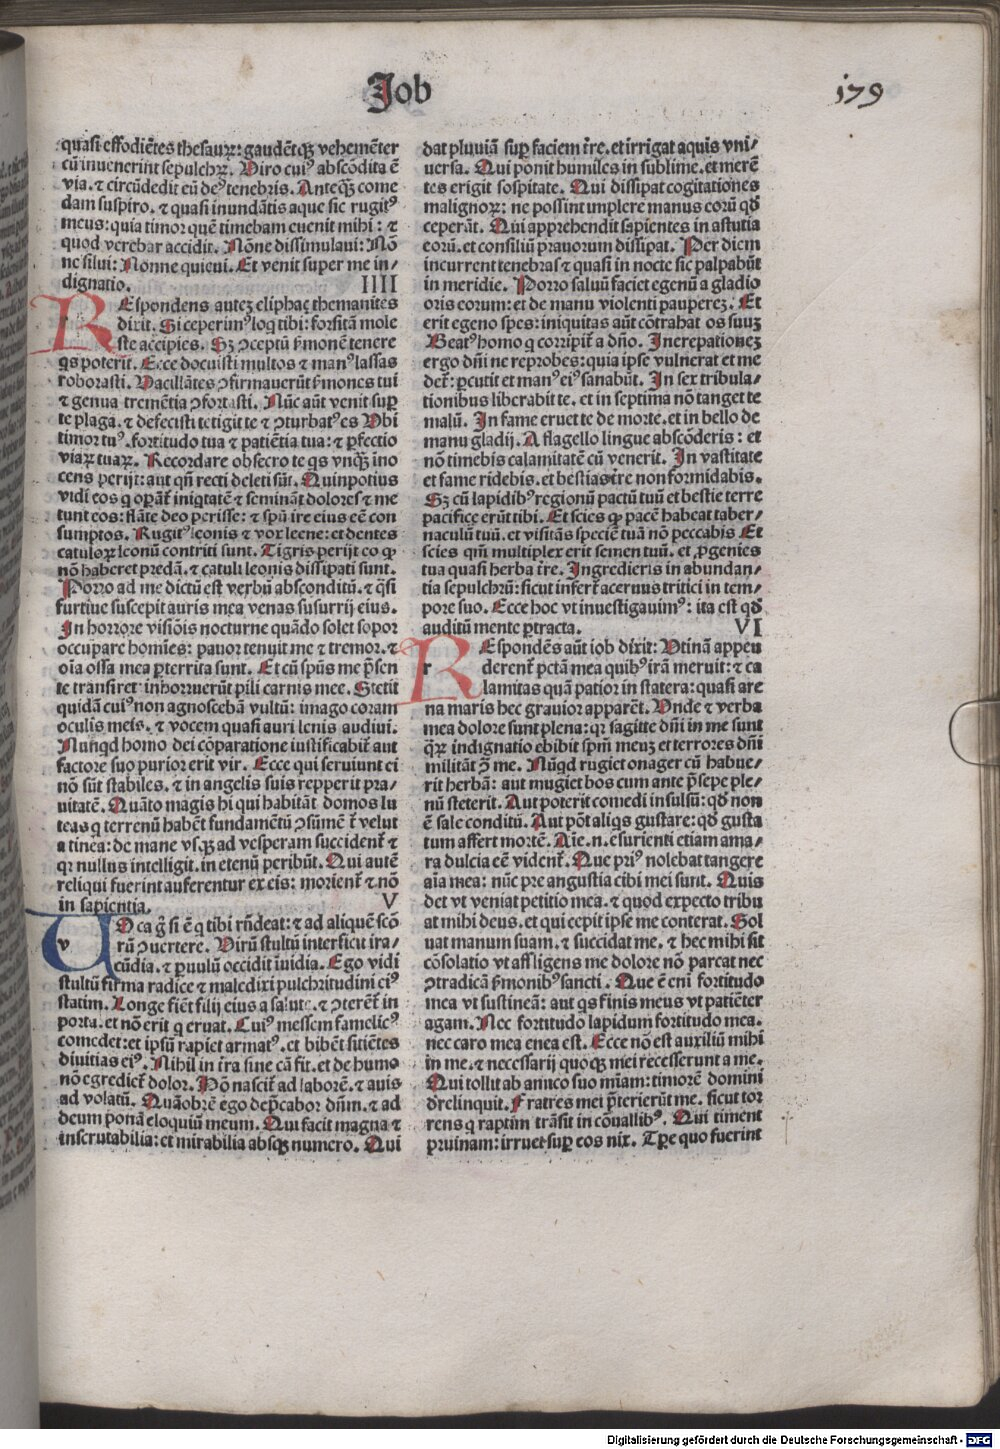 Job
179
quasi effodiētes thesauꝝ: gaudētqꝫ vehemēter
cū inuenerint sepulchꝝ. Viro cuiꝰ abscōdita ē
via. ⁊ circūdedit eū deꝰ tenebris. Anteqꝫ come
dam suspiro. ⁊ quasi inundātis aque sic rugitꝰ
meus: quia timor quē timebam euenit mihi: ⁊
quod verebar accidit. Nōne dissimulaui: Nō
ne silui: Nonne quieui. Et venit super me in/
dignatio. IIII
REspondens auteꝫ eliphaꝫ themanites
dixit. Si ceperimꝰ loq̄ tibi: forsitā mole
ste accipies. Sꝫ ꝯceptū ẜmonē tenere
q̄s poterit. Ecce docuisti multos ⁊ manꝰ lassas
roborasti. Vacillātes ꝯfirmauerūt ẜmones tui
⁊ genua tremētia ꝯfortasti. Nūc aūt venit suꝑ
te plaga. ⁊ defecisti tetigit te ⁊ ꝯturbatꝰ es Vbi
timor tuꝰ. fortitudo tua ⁊ patiētia tua: ⁊ ꝑfectio
viaꝝ tuaꝝ. Recordare obsecro te q̄s vnqꝫ īno
cens perijt: aut qn̄ recti deleti sūt. Quinpotius
vidi eos q̄ oꝑāt̄ iniq̄tatē ⁊ semināt dolores ⁊ me
tunt eos: flāte deo perisse: ⁊ spū ire eius eē con
sumptos. Rugitꝰ leonis ⁊ vox leene: et dentes
catuloꝝ leonū contriti sunt. Tigris perijt eo ꝙ
nō haberet predā. ⁊ catuli leonis dissipati sunt.
Porro ad me dictū est verbū absconditū. ⁊ q̄si
furtiue suscepit auris mea venas susurrij eius.
In horrore visiōis nocturne quādo solet sopor
occupare homīes: pauor tenuit me ⁊ tremor. ⁊
oīa ossa mea ꝑterrita sunt. Et cū spūs me p̄sen
te transiret inhorruerūt pili carnis mee. Stetit
quidā cuiꝰ non agnoscebā vultū: imago coram
oculis meis. ⁊ vocem quasi auri lenis audiui.
Nunq̄d homo dei cōparatione iustificabit̄ aut
factore suo purior erit vir. Ecce qui seruiunt ei
nō sūt stabiles. ⁊ in angelis suis repperit pra/
uitatē. Quāto magis hi qui habitāt domos lu
teas q̄ terrenū habēt fundamētū ꝯsūmē t̄ velut
a tinea: de mane vsqꝫ ad vesperam succident̄ ⁊
qꝛ nullus intelligit. in eternū peribūt. Qui autē
reliqui fuerint auferentur ex eis: morient̄ ⁊ nō
in sapientia. V
UOca g̊ si ē q̄ tibi rn̄deat: ⁊ ad aliquē scō
v rū ꝯuertere. Virū stultū interficit ira/
cūdia. ⁊ ꝑuulū occidit īuidia. Ego vidi
stultū firma radice ⁊ maledixi pulchritudini eiꝰ
statim. Longe fiēt filij eius a salute. ⁊ ꝯterēt̄ in
porta. et nō erit q̄ eruat. Cuiꝰ messem famelicꝰ
comedet: et ipsū rapiet armatꝰ. et bibēt sitiētes
diuitias eiꝰ. Nihil in t̄ra sine cā fit. et de humo
nō egrediet̄ dolor. Hō nascit̄ ad laborē. ⁊ auis
ad volatū. Quāobrē ego dep̄cabor dn̄m. ⁊ ad
deum ponā eloquiū meum. Qui facit magna ⁊
inscrutabilia: et mirabilia absqꝫ numero. Qui
dat pluuiā suꝑ faciem t̄re. et irrigat aquis vni/
uersa. Qui ponit humiles in sublime. et merē
tes erigit sospitate. Qui dissipat cogitationes
malignoꝝ: ne possint implere manus eorū qd̄
ceperāt. Qui apprehendit sapientes in astutia
eorū. et consiliū prauorum dissipat. Per diem
incurrent tenebras ⁊ quasi in nocte sic palpabūt
in meridie. Porro saluū faciet egenū a gladio
oris eorum: et de manu violenti paupereꝫ. Et
erit egeno spes: iniquitas aūt cōtrahat os suuꝫ
Beatꝰ homo q̄ corripit̄ a dn̄o. Increpationeꝫ
ergo dn̄i ne reprobes: quia ipse vulnerat et me
det̄: ꝑcutit et manꝰ eiꝰ sanabūt. In sex tribula/
tionibus liberabit te. et in septima nō tanget te
malū. In fame eruet te de morte. et in bello de
manu gladij. A flagello lingue abscōderis: et
nō timebis calamitatē cū venerit. In vastitate
et fame ridebis. et bestias t̄re non formidabis.
Sꝫ cū lapidibꝰ regionū pactū tuū et bestie terre
pacifice erūt tibi. Et scies ꝙ pacē habeat taber/
naculū tuū. et visitās speciē tuā nō peccabis Et
scies qm̄ multiplex erit semen tuū. et ꝓgenies
tua quasi herba t̄re. Ingredieris in abundan/
tia sepulchrū: sicut infert̄ aceruus tritici in tem/
pore suo. Ecce hoc vt inuestigauimꝰ: ita est qd̄
auditū mente ꝑtracta. VI
REspondēs aūt iob dixit: Vtinā appen
r derent̄ pctā mea quibꝰ irā merui: ⁊ ca
lamitas quā patior in statera: quasi are
na maris hec grauior apparēt. Vnde ⁊ verba
mea dolore sunt plena: qꝛ sagitte dn̄i in me sunt
q̄ꝝ indignatio ebibit spm̄ meuꝫ et terrores dn̄i
militāt ꝯ̄ me. Nūq̄d rugiet onager cū habue/
rit herbā: aut mugiet bos cum ante p̄sepe ple/
nū steterit. Aut poterit comedi insulsū: qd̄ non
ē sale conditū. Aut pōt aliq̄s gustare: qd̄ gusta
tum affert mortē. Aīe. n. esurienti etiam ama/
ra dulcia eē vident̄. Que priꝰ nolebat tangere
aīa mea: nūc pre angustia cibi mei sunt. Quis
det vt veniat petitio mea. ⁊ quod expecto tribu
at mihi deus. et qui cepit ipse me conterat. Sol
uat manum suam. ⁊ succidat me. ⁊ hec mihi sit
cōsolatio vt affligens me dolore nō parcat nec
ꝯtradicā ẜmonibꝰ sancti. Que ē eni fortitudo
mea vt sustineā: aut q̄s finis meus vt patiēter
agam. Nec fortitudo lapidum fortitudo mea.
nec caro mea enea est. Ecce nō est auxiliū mihi
in me. ⁊ necessarij quoqꝫ mei recesserunt a me.
Qui tollit ab amico suo mīam: timorē domini
d̄relinquit. Fratres mei p̄terierūt me. sicut tor
rens q̄ raptim trāsit in cōuallibꝰ. Qui timent
pruinam: irruet suꝑ eos nix. Tꝑe quo fuerint
Digitalisierung gefördert durch die Deutsche Forschungsgemeinschaft - DFG